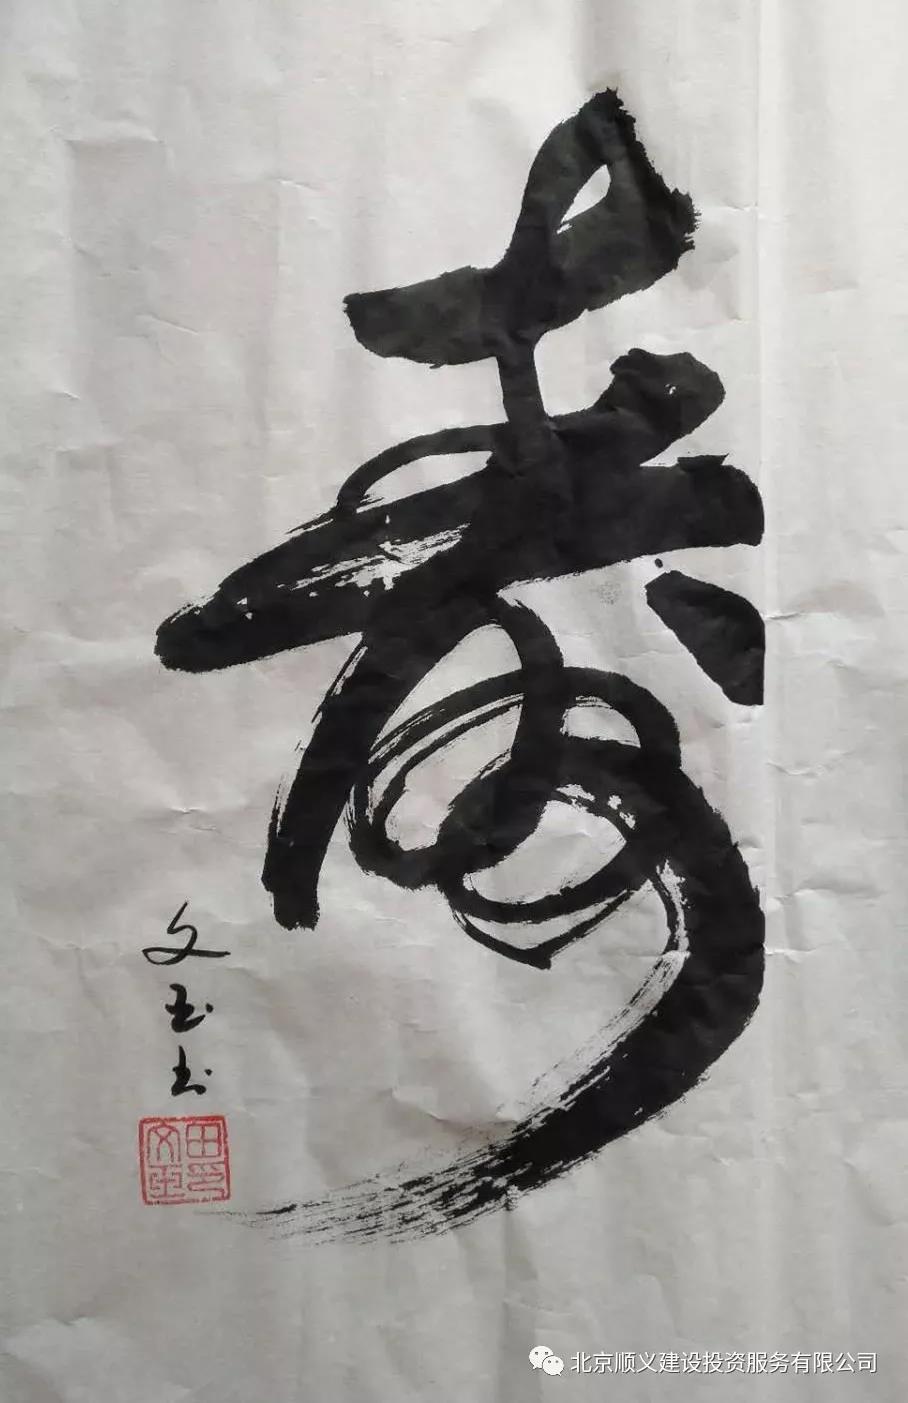 寿
文玉书
田文玉印
北京顺义建设投资服务有限公司